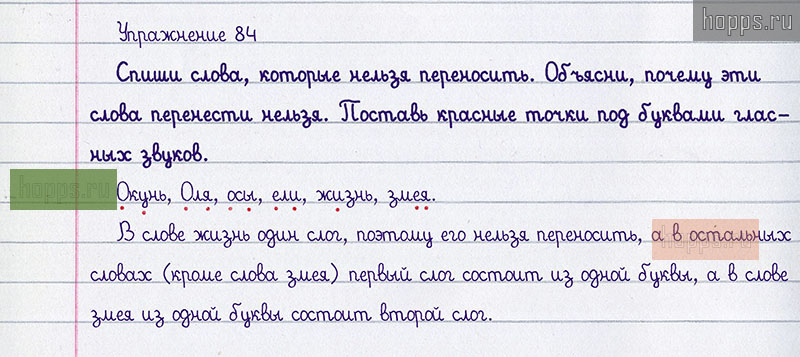 hopps.ru
Упражнение 84
Спиши слова, которые нельзя переносить. Объясни, почему эти
слова перенести нельзя. Поставь красные точки под буквами глас-
ных звуков.
hopps.ru
Окунь, Оля, осы, ели, жизнь, змея.
В слове жизнь один слог, поэтому его нельзя переносить, а в остальных
словах (кроме слова змея) первый слог состоит из одной буквы, а в слове
змея из одной буквы состоит второй слог.